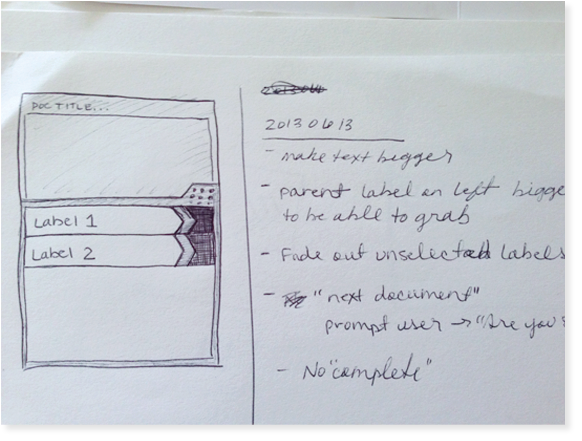 DOC TITLE...
Label 1
Label 2
20130613
- make text bigger
- parent label on left bigge
to be able to grab
- Fade out unselected labels
- "next document"
prompt user → "Are you
- No "complete"